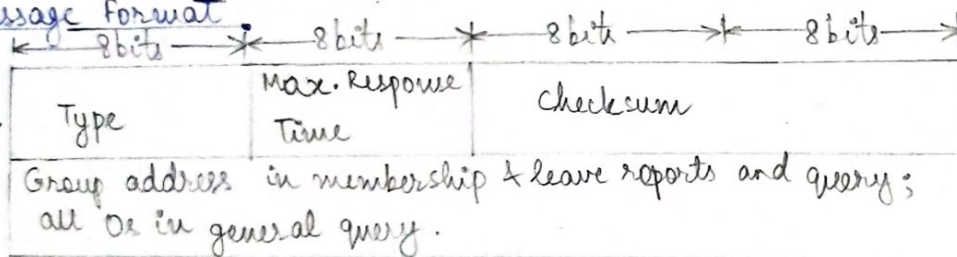 ssage Format
8bits 8bits 8bits 8bits
Type Max. Response Time Checksum
Group address in membership & leave reports and query;
all 0s in general query.